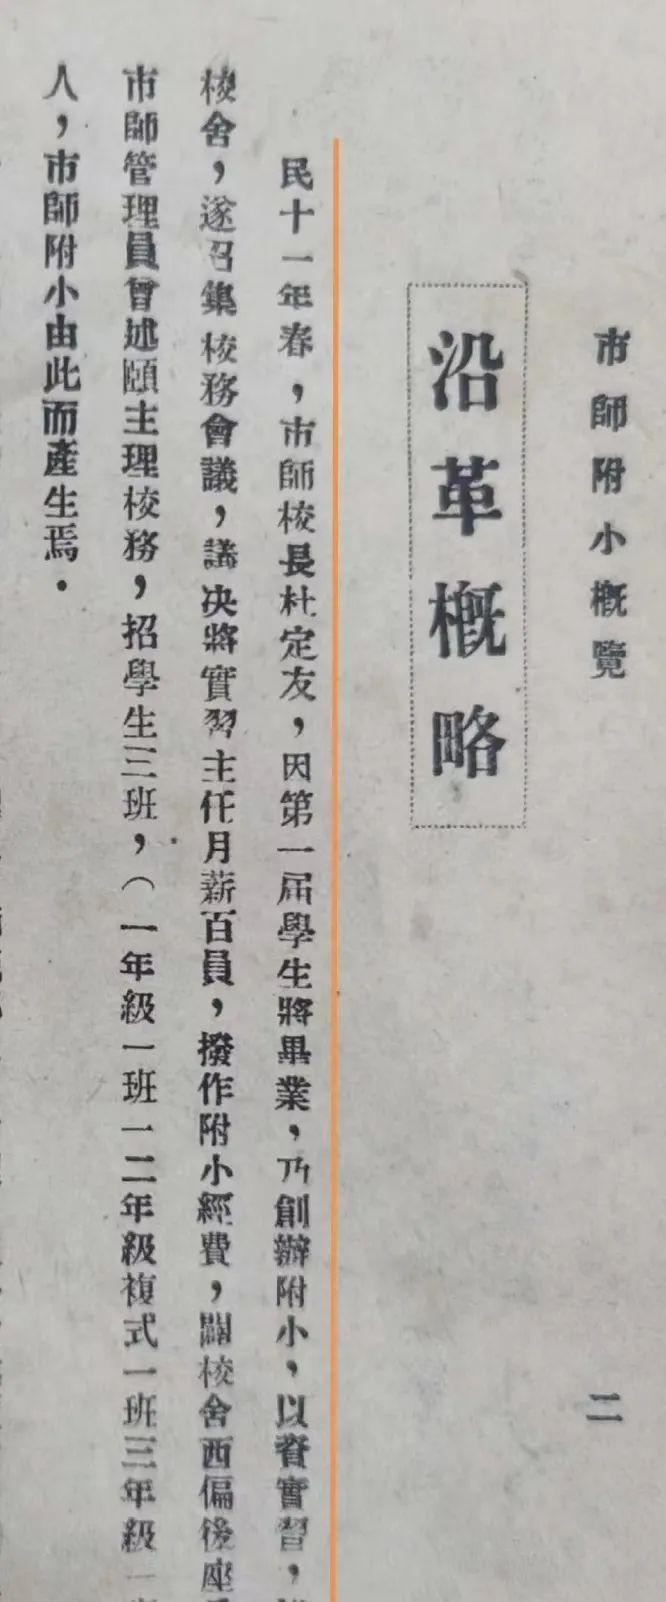 市師附小概覽
二
沿革概略
民十一年春，市師校長杜定友，因第一屆學生將畢業，乃創辦附小，以資實習，
校舍，遂召集校務會議，議决將實習主任月薪百員，撥作附小經費，闢校舍西偏後座
市師管理員曾述頤主理校務，招學生三班，（一年級一班一二年級複式一班三年級一
人，市師附小由此而產生焉．